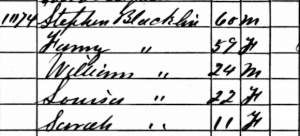 11174 Stephen Blacklin 60 M
Fanny " 59 F
William " 24 M
Louisa " 22 F
Sarah " 11 F